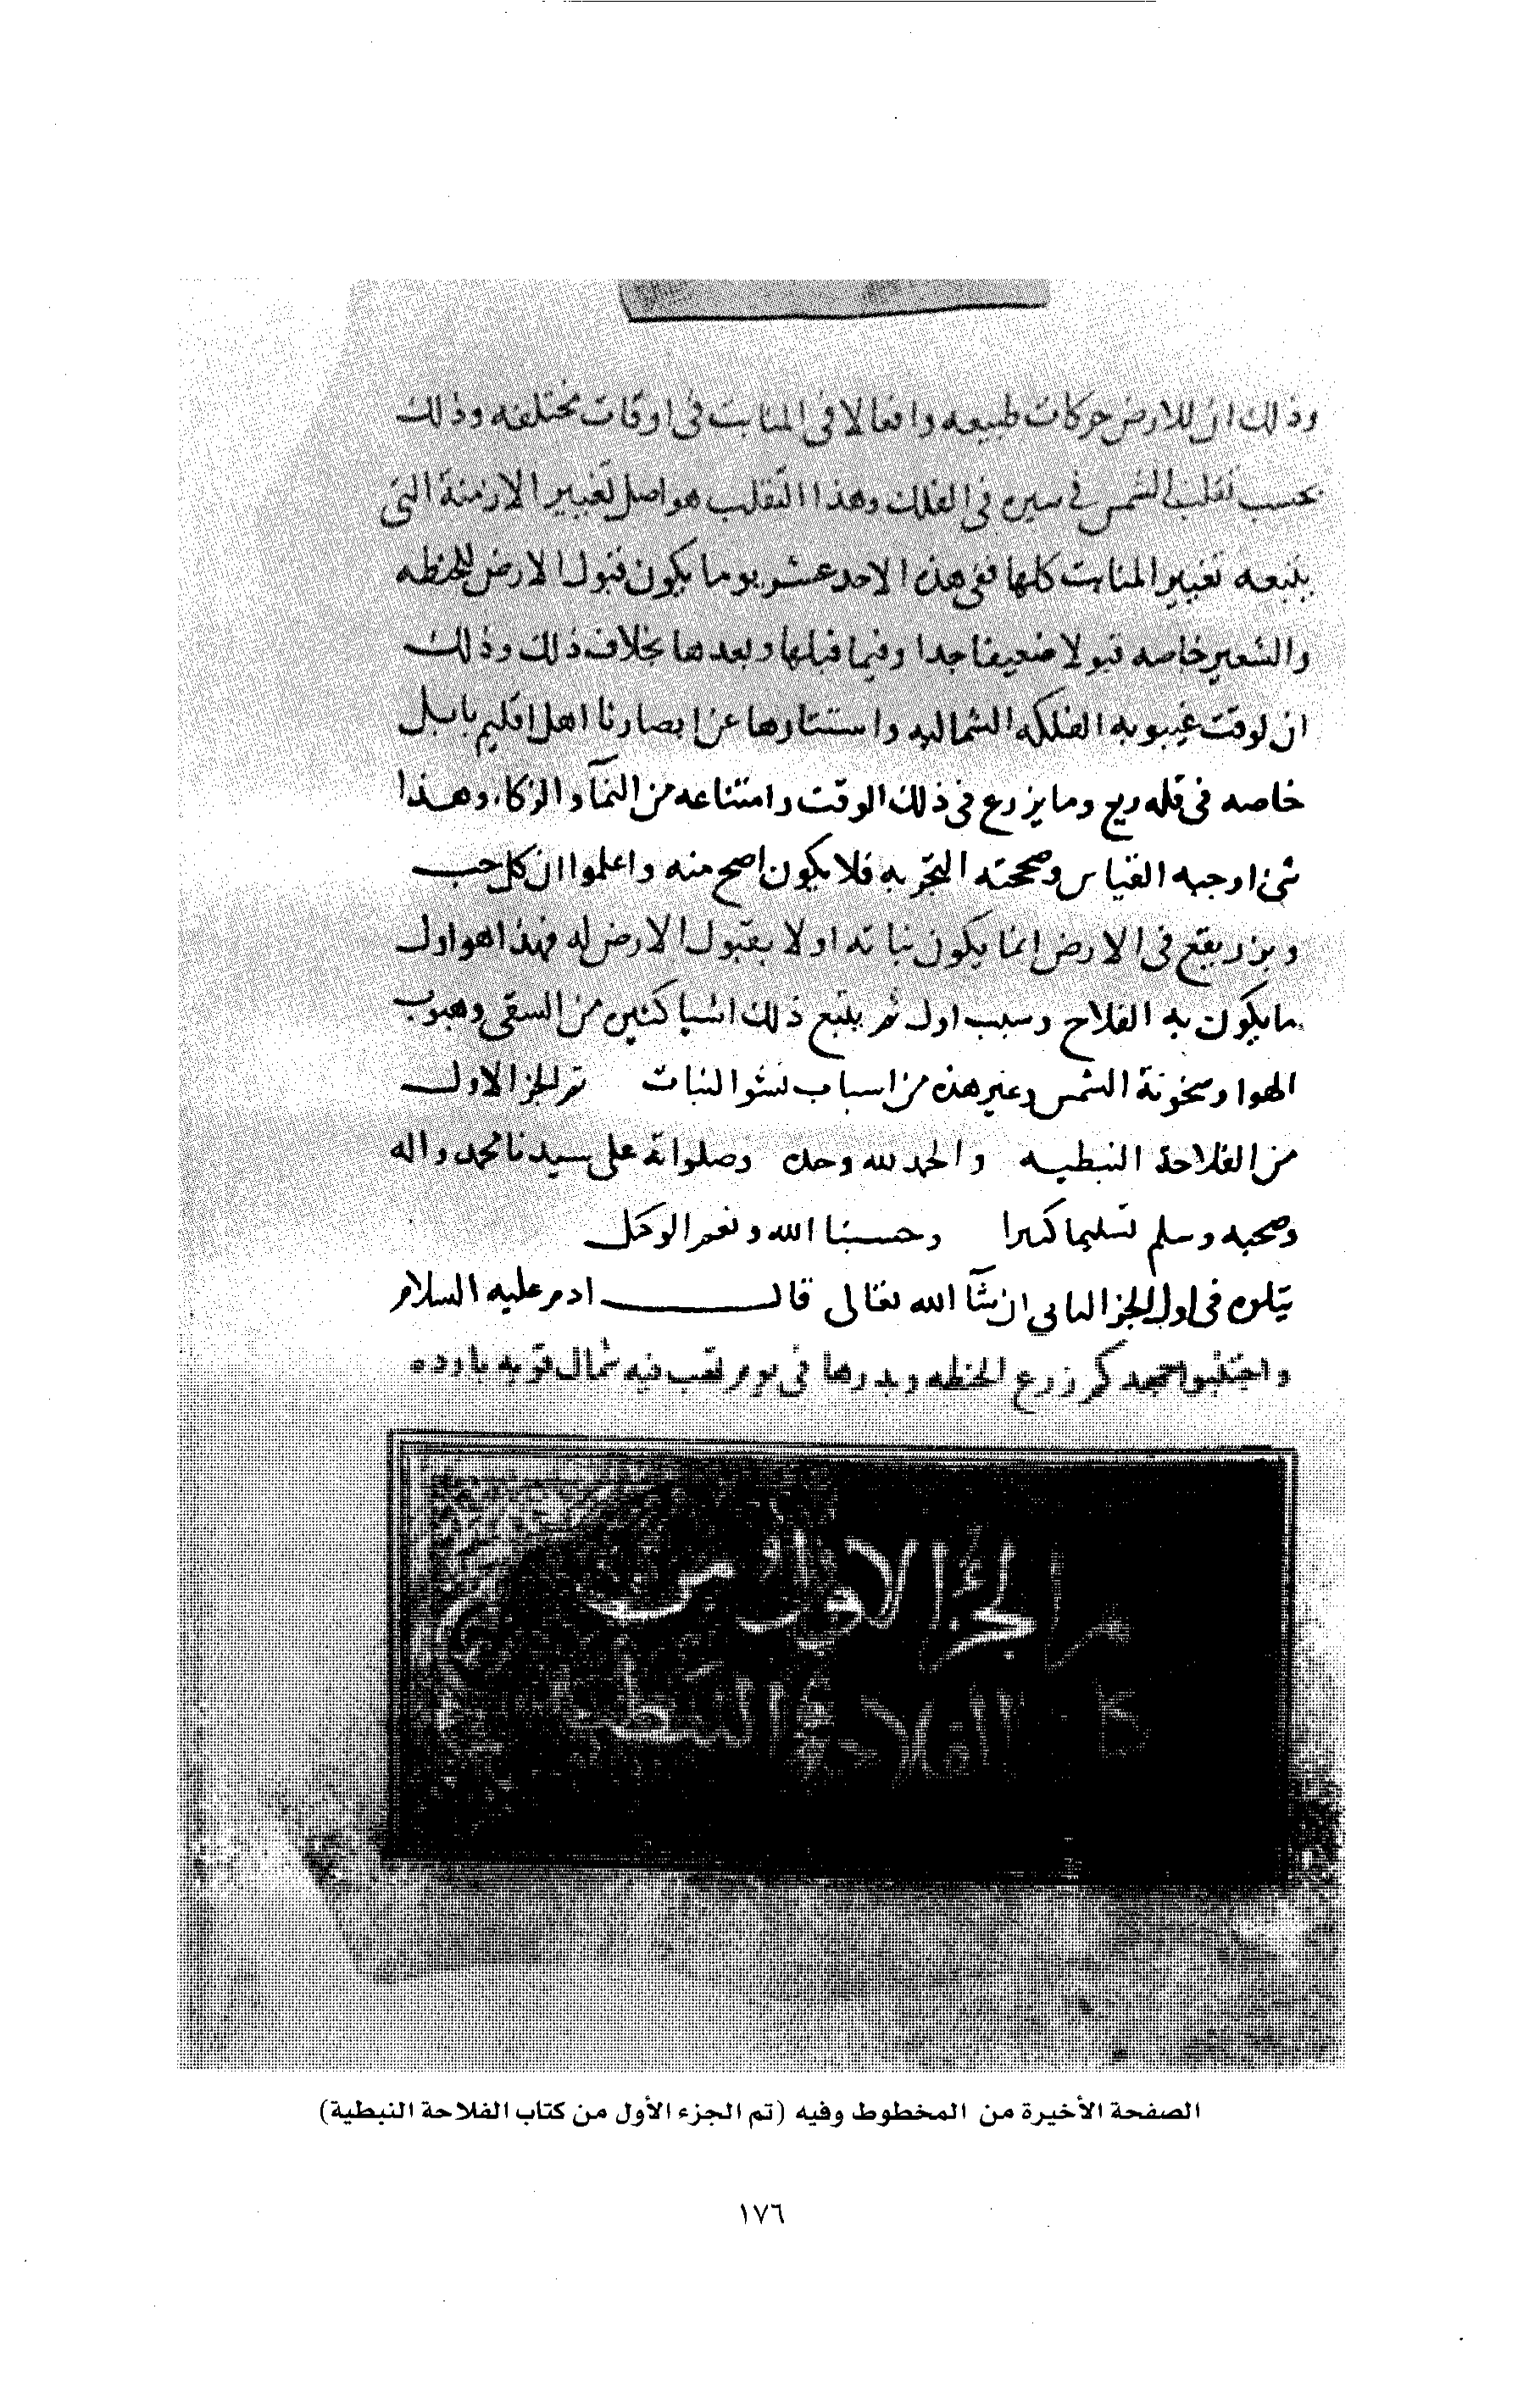 وذلك ان للارض حركات طبيعيه وافعالا في المنابت في اوقات مختلفه وذلك
بحسب تقلب الشمس في سيره في الفلك وهذا التقلب هو اصل تغيير الازمنة التي
يتبعه تغيير المنابت كلها ففي هذه الاحد عشر يوما يكون قبول الارض للحنطه
والشعير خاصه قبولا ضعيفا جدا وفيما قبلها وبعدها بخلاف ذلك وذلك
ان لوقت غيبوبه الفلكه الشماليه واستتارها عن ابصارنا اهل اقليم بابل
خاصه في قله ريع وما يزرع في ذلك الوقت وامتناعه من النمآ والزكاء وهذا
شئ اوجبه القياس وصححته التجربه فلا يكون اصح منه واعلموا ان كل حب
وبزر يقع في الارض انما يكون نباته اولا بقبول الارض له فهذا هو اول
ما يكون به الفلاح وسبب اول ثم يتبع ذلك اشيا كثير من السقي وهبوب
الهوا وسخونة الشمس وغير هذه من اسباب نشو النبات تم الجز الاول
من الفلاحة النبطيه والحمد لله وحده وصلواته على سيدنا محمد واله
وصحبه وسلم تسليما كثيرا وحسبنا الله ونعم الوكيل
يتلوه في اول الجز الثاني ان شآ الله تعالى قال ادم عليه السلام
واجتنبوا زرع الحنطه وبذرها في يوم تهب فيه شمال قويه بارده
الجزء الاول من
كتاب الفلاحة النبطية
الصفحة الأخيرة من المخطوط وفيه (تم الجزء الأول من كتاب الفلاحة النبطية)
١٧٦